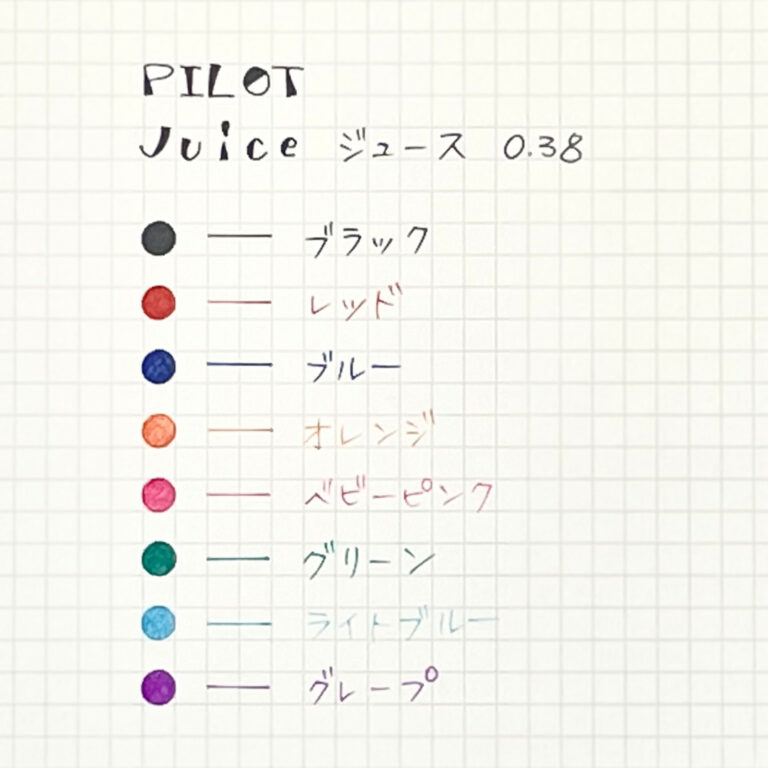 PILOT
Juice ジュース 0.38
ブラック
レッド
ブルー
オレンジ
ベビーピンク
グリーン
ライトブルー
グレープ